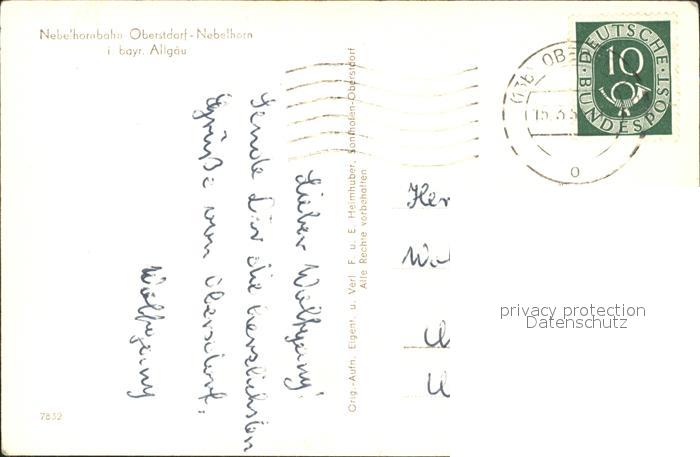 Nebelhornbahn Oberstdorf-Nebelhorn
i bayr. Allgäu
Lieber Wolfgang!
Sende Dir die herzlichsten
Grüße von Oberstdorf.
Wolfgang
Orig.-Aufn. Eigent. u. Verl. F. u. E. Heimhuber, Sonthofen-Oberstdorf
Alle Rechte vorbehalten
DEUTSCHE
10
BUNDESPOST
OB
15.3.5
o
Her
Wol
U
U
privacy protection
Datenschutz
7832